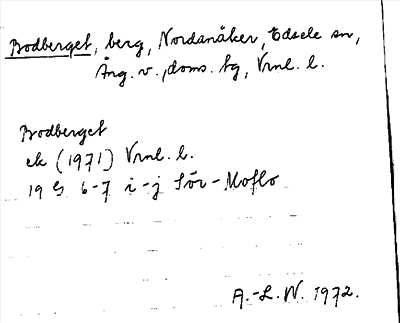 Bodberget, berg, Nordanåker, Edsele sn,
Ång. v., doms. tg, Vrnl. l.
Bodberget
ek (1971) Vrnl. l.
19 G 6-7 i-j Sör-Moflo
A.-L. W. 1972.